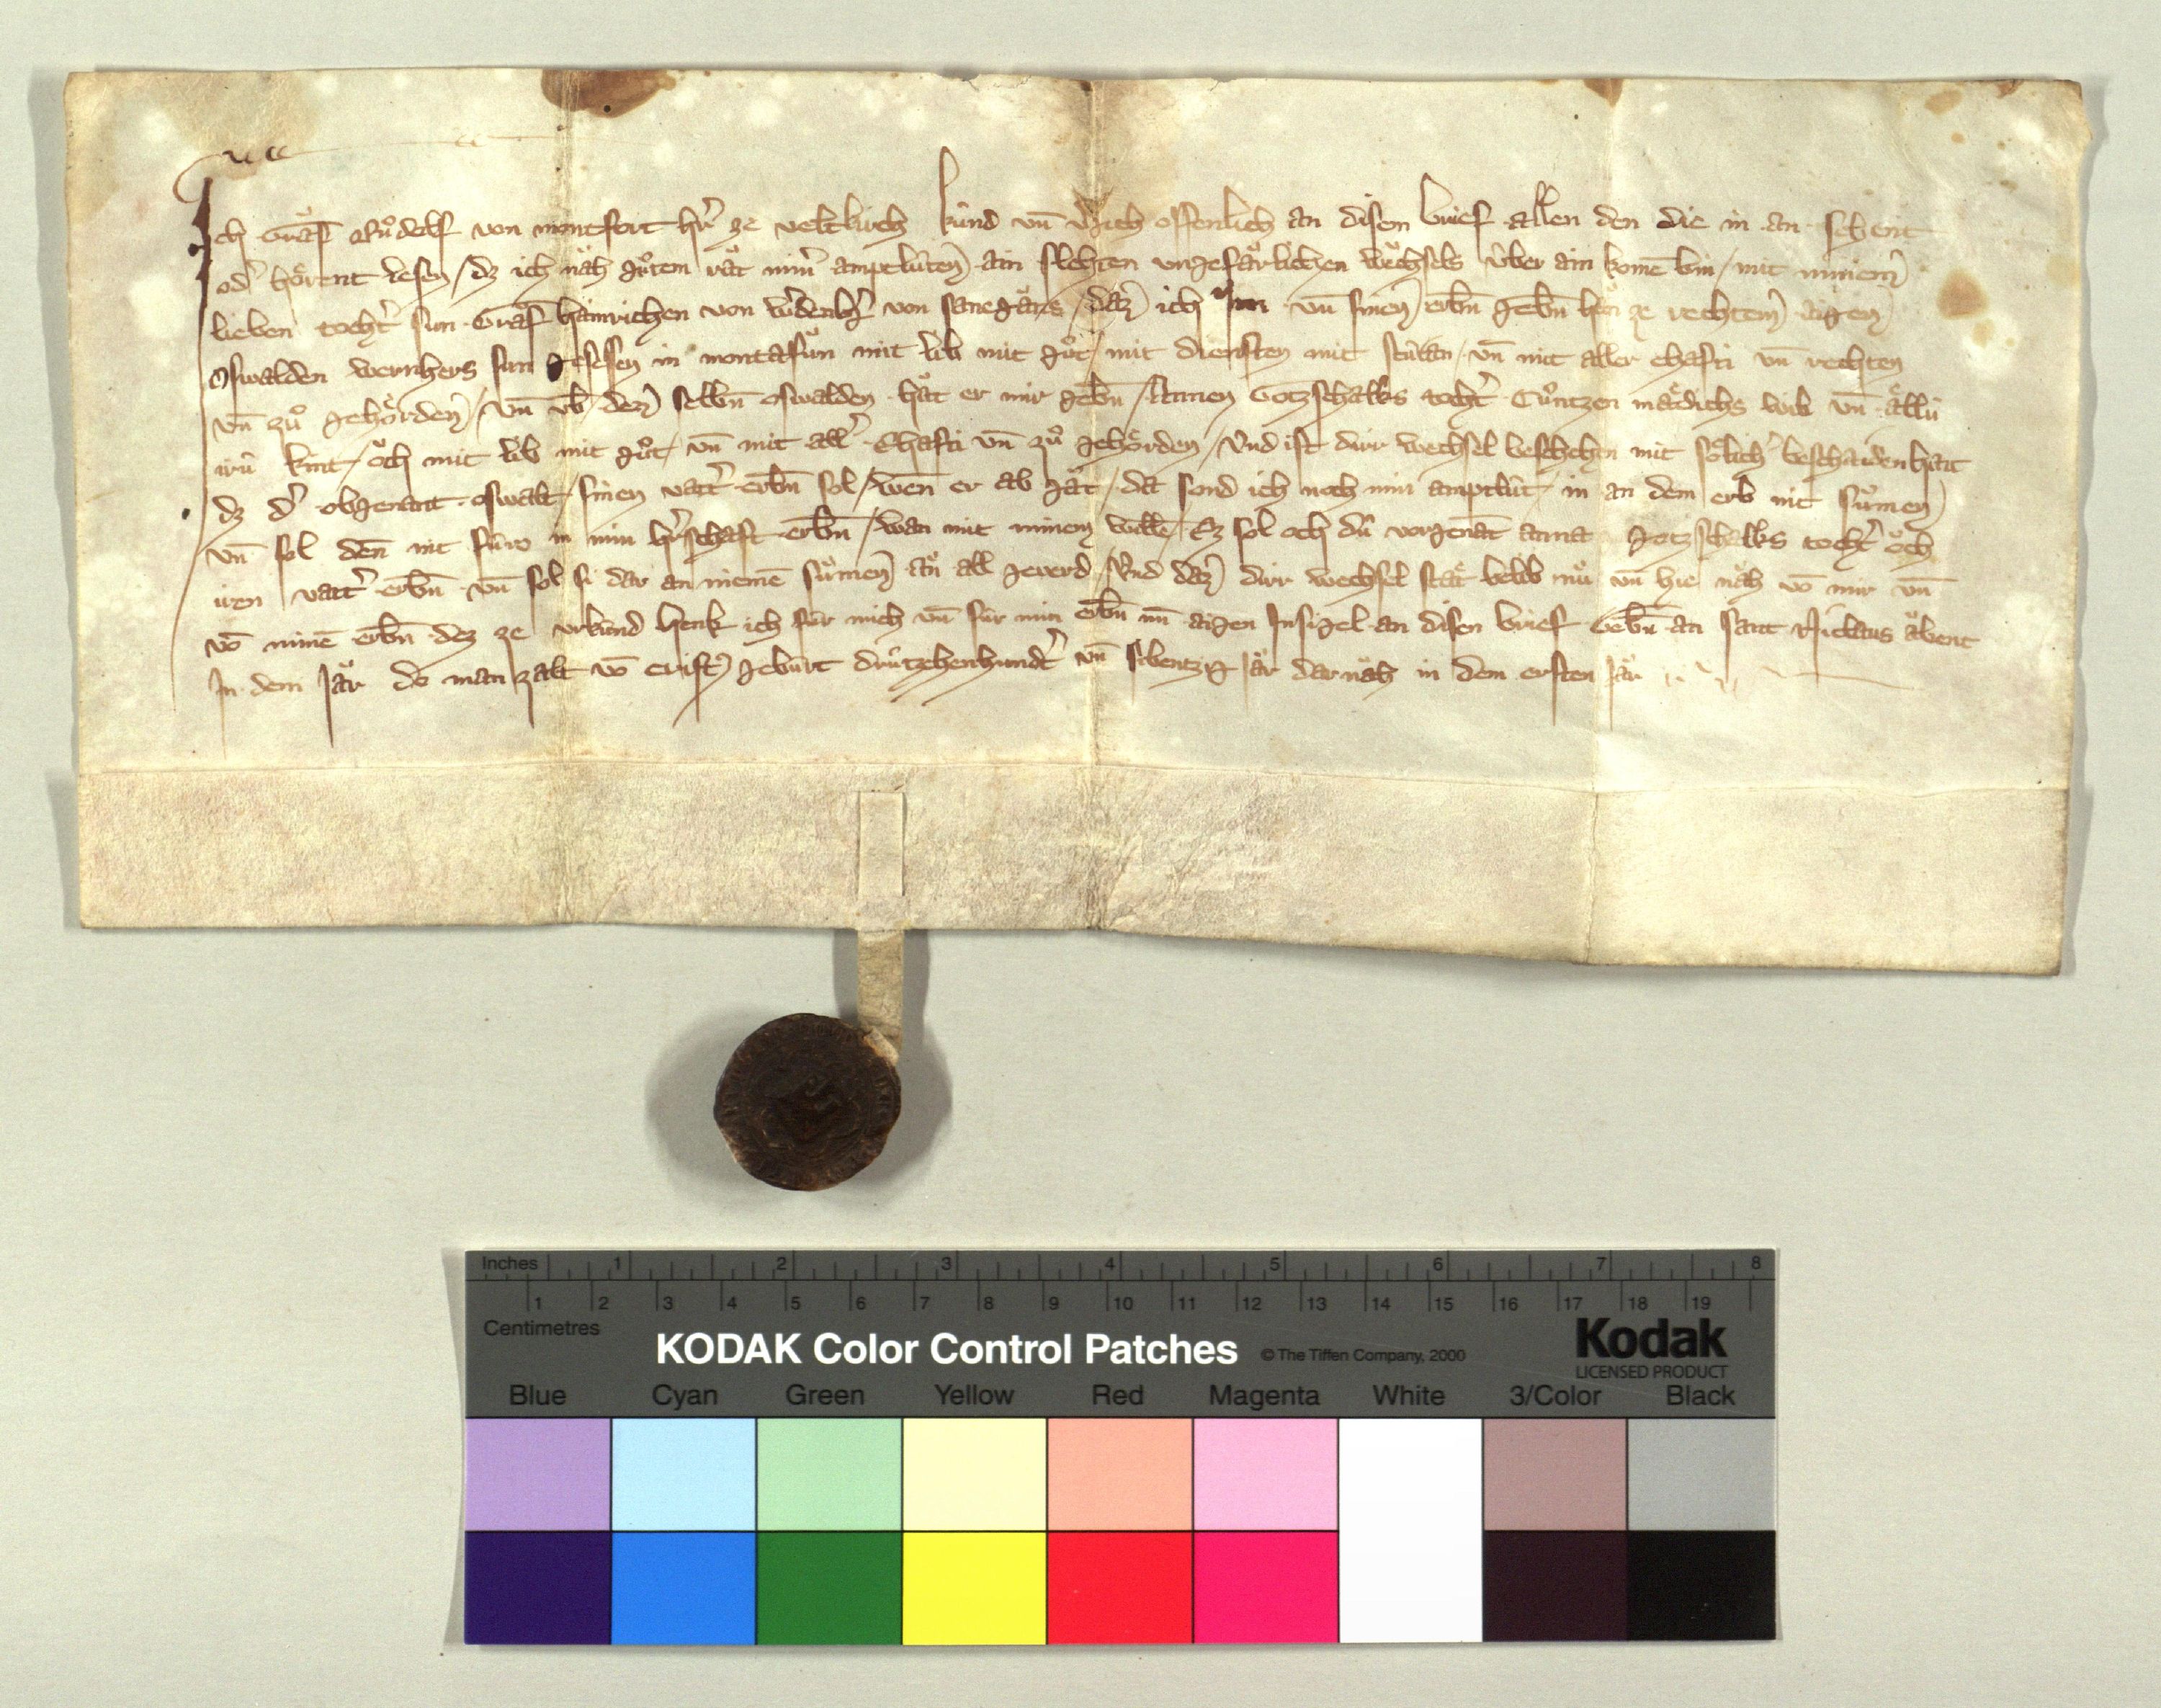 Ich Graͮf Ruͦdolf von montfort hr̄ ze veltkirch kúnd vn̄ vgich offenlich an disem brief allen den die in an sehent
od' hoͤrent lesen / dz ich naͮh guͦtem raͮt min' amptlúten ain slehten ungefaͤrlichen wechsels úber ain komē bin / mit minem
lieben tocht' sun Graͮf hainrichen von w'denb'g von sanegans / daz ich Im vn̄ sinen erbn̄ gebn̄ han ze rechtem aigen
Oswalden wernhers sun gesessen in montafún mit lib mit guͦt / mit diensten mit stúran / vn̄ mit aller ehafti vn̄ rechten
vn̄ zuͦ gehoͤrden / vn̄ vb den selbn̄ oswalden haͮt er mir gebn̄ / Annen Gotzschalks tocht' Cuͦntzen maͤdichs wib vn̄ aͤllú
irú kint / oͮch mit lib mit guͦt / vn̄ mit all' Ehafti vn̄ zuͦ gehoͤrden / Vnd ist dirr wechsel beschehen mit soͤlich' beschaidenhait
dz d' obgenant oswalt / sinen vatt' erbn̄ sol / wen̄ er ab gaͮt / da sond ich noch min amptlút / in an dem erb nit suͤmen
vn̄ sol den̄ nit fúro in min hr̄schaft erbn̄ / wan mit minem willē / Ez sol och dú vorgenāt anna gotzschalks tocht' oͮch
iren vatt' erbn̄ vn̄ sol si dar an niemē suͤmen aͮn all geverd / Vnd daz dirr wechsel staͤt belib nuͮ vn̄ hie naͮh vō mir vn̄
vō minē erbn̄ dez ze vrkúnd henk ich fúr mich vn̄ fúr min erbn̄ min aigen Insigel an disen brief Gebn̄ an sant Niclaus aͮbent
In dem Jaͮr do man zalt vō crist' gebúrt drútzehenhundt' vn̄ sibentzig Jaͮr dar naͮh in dem ersten Jaͮr
Inches 1 2 3 4 5 6 7 8
1 2 3 4 5 6 7 8 9 10 11 12 13 14 15 16 17 18 19
Centimetres
KODAK Color Control Patches © The Tiffen Company, 2000 Kodak
LICENSED PRODUCT
Blue Cyan Green Yellow Red Magenta White 3/Color Black